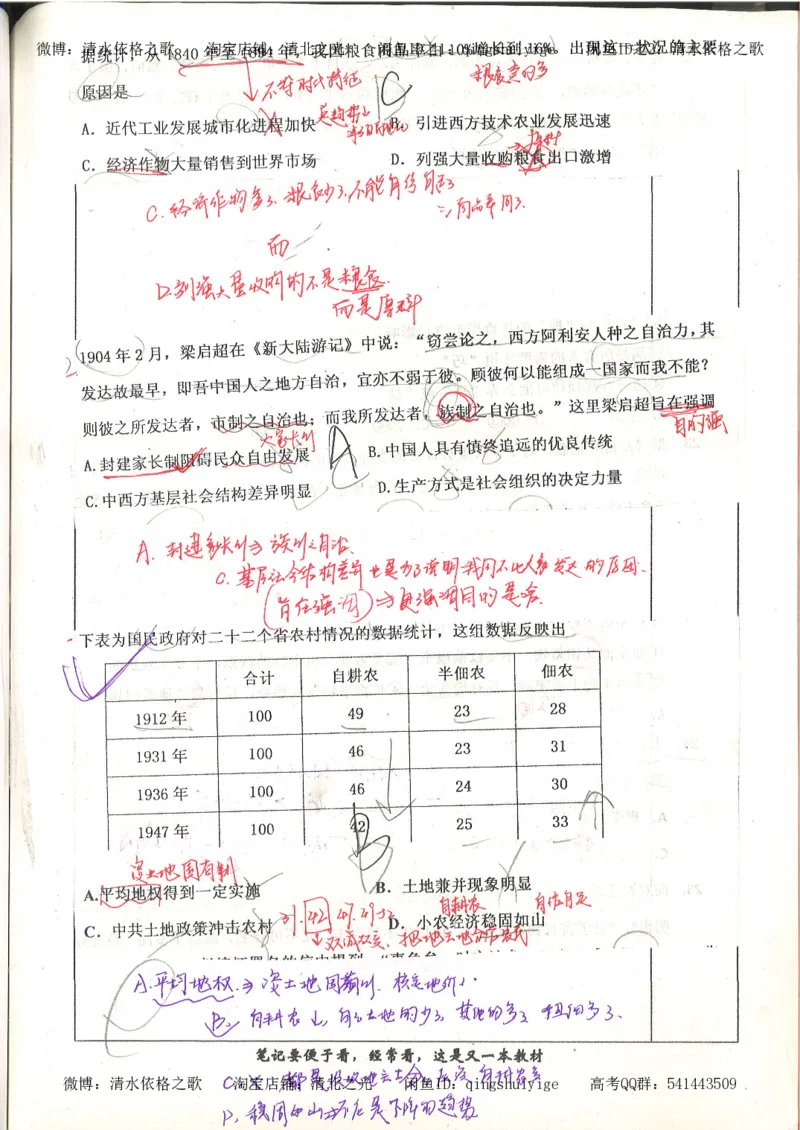 微博：清水依格之歌 淘宝店铺：清北之光 闲鱼ID：qingshuiyige
据统计，从1840年至1894年，我国粮食商品率由10%增长到16%。出现这一状况的主要
原因是
不符时代特征
C
A. 近代工业发展城市化进程加快
B. 引进西方技术农业发展迅速
C. 经济作物大量销售到世界市场
D. 列强大量收购粮食出口激增
C. 经济作物多了、粮食少了、不能自给自足了
∴商品率高了.
而
D.列强大量收购的不是粮食.
而是原料
1904年2月，梁启超在《新大陆游记》中说：“窃尝论之，西方阿利安人种之自治力，其
发达故最早，即吾中国人之地方自治，宜亦不弱于彼。顾彼何以能组成一国家而我不能？
则彼之所发达者，市制之自治也；而我所发达者，族制之自治也。”这里梁启超旨在强调
目的强
A
A.封建家长制阻碍民众自由发展
B.中国人具有慎终追远的优良传统
C.中西方基层社会结构差异明显
D.生产方式是社会组织的决定力量
A. 封建家长制⇒族制之自治.
C.基层社会结构差异也是为了说明我们不比人家发达的原因.
(旨在强调)⇒更强调目的是啥.
下表为国民政府对二十二个省农村情况的数据统计，这组数据反映出
合计 自耕农 半佃农 佃农
1912年 100 49 23 28
1931年 100 46 23 31
1936年 100 46 24 30
1947年 100 42 25 33
B
资土地国有制
A.平均地权得到一定实施
B. 土地兼并现象明显
自耕农
自给自足
C. 中共土地政策冲击农村
D. 小农经济稳固如山
A.平均地权.⇒资土地国有制、核定地价.
B. 自耕农↓, 自己土地的少了, 其他的多了, 租佃多了、
笔记要便于看，经常看，这是又一本教材
微博：清水依格之歌 淘宝店铺：清北之光 闲鱼ID：qingshuiyige 高考QQ群：541443509
D. 稳固如山→不应是下降的趋势